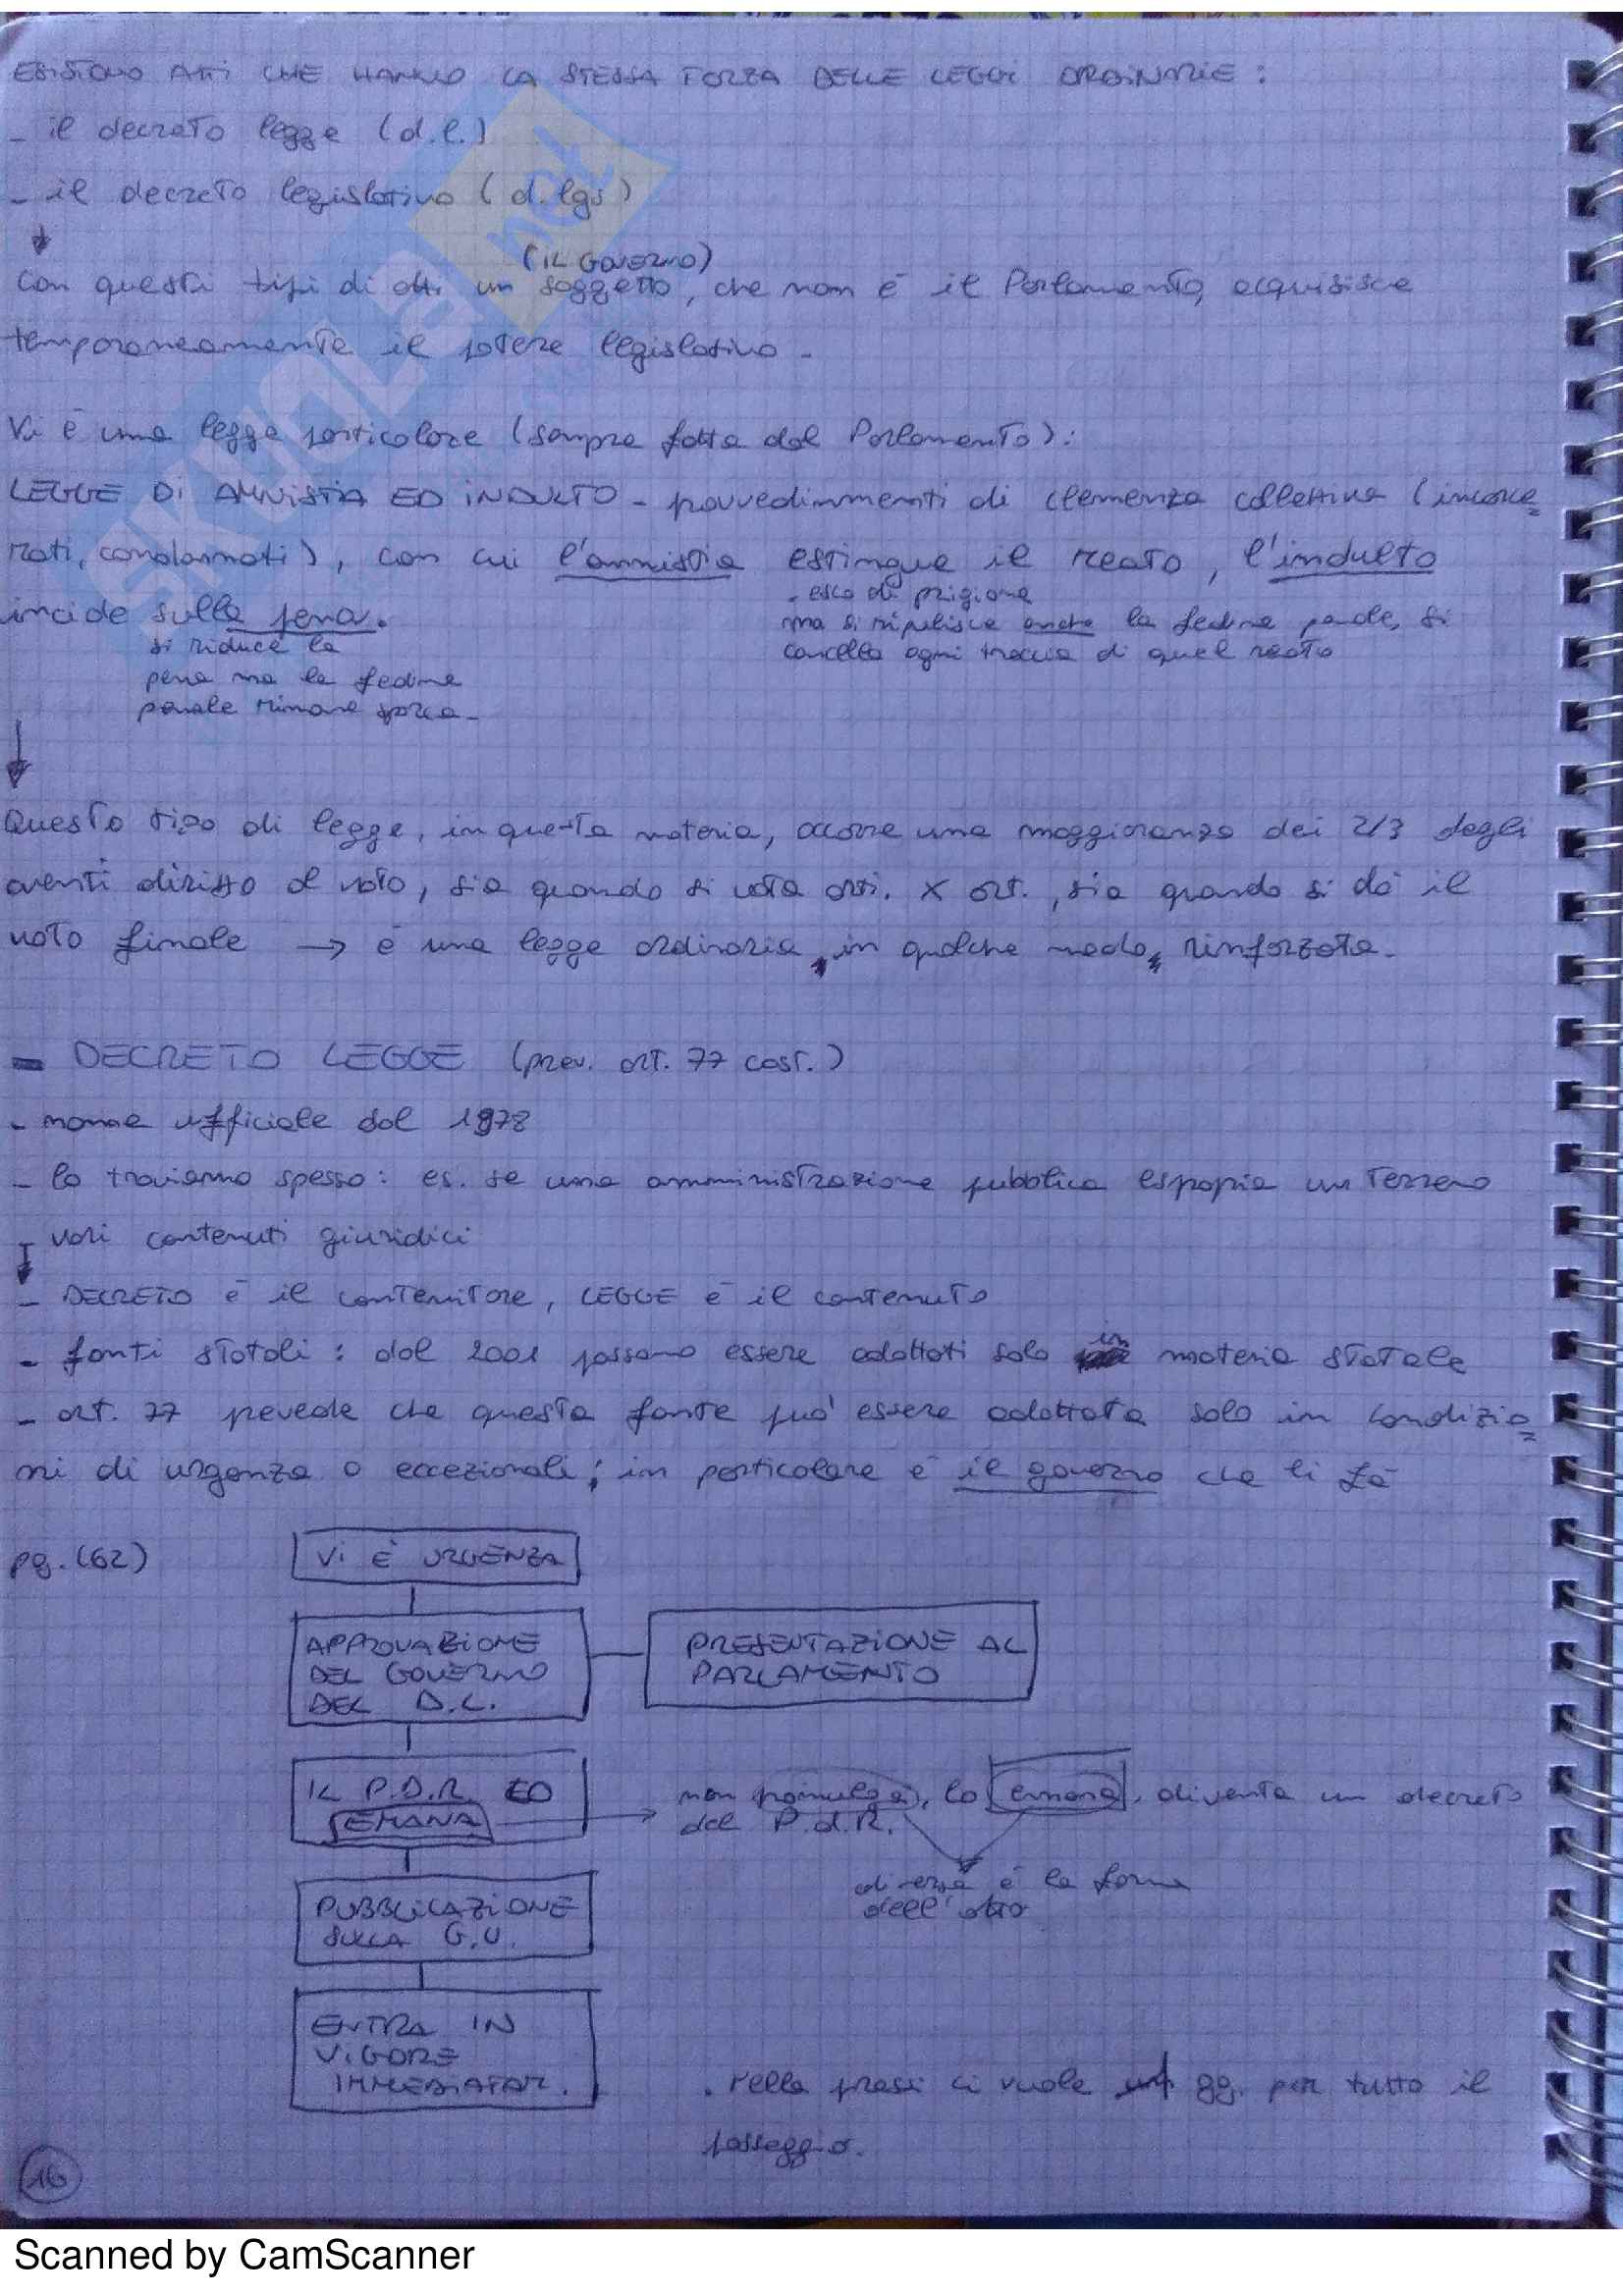 ESISTONO ATTI CHE HANNO LA STESSA FORZA DELLE LEGGI ORDINARIE :
- il decreto legge (d.l.)
- il decreto legislativo (d.lgs)
(IL GOVERNO)
Con questi tipi di atti un soggetto, che non è il Parlamento, acquisisce
temporaneamente il potere legislativo.
Vi è una legge particolare (sempre fatta dal Parlamento):
LEGGE DI AMNISTIA ED INDULTO - provvedimmenti di clemenza collettiva (incarce
rati, condannati), con cui l'amnistia estingue il reato, l'indulto
. esco di prigione
incide sulla pena.
ma si ripulisce anche la fedina penale, si
cancella ogni traccia di quel reato
si riduce la
pena ma la fedina
penale rimane sporca.
Questo tipo di legge, in questa materia, occorre una maggioranza dei 2/3 degli
aventi diritto al voto, sia quando si vota arti. x art., sia quando si dà il
voto finale → è una legge ordinaria, in qualche modo, rinforzata.
- DECRETO LEGGE (prev. art. 77 cost.)
- nome ufficiale dal 1978
- lo troviamo spesso: es. se una amministrazione pubblica espropria un terreno
vari contenuti giuridici
- DECRETO è il contenitore, LEGGE è il contenuto
- fonti statali : dal 2001 possono essere adottati solo in materia statale
- art. 77 prevede che questa fonte può essere adottata solo in condizio
ni di urgenza o eccezionali; in particolare è il governo che li fà
pg. (62)
VI È URGENZA
APPROVAZIONE
DEL GOVERNO
DEL D.L.
PRESENTAZIONE AL
PARLAMENTO
IL P.D.R. LO
EMANA
non promulga, lo emana, diventa un decreto
del P.d.R.
diversa è la forma
dell'atto
PUBBLICAZIONE
SULLA G.U.
ENTRA IN
VIGORE
IMMEDIATAM.
. nella prassi ci vuole gg. per tutto il
passaggio.
16
SKUOLA.net
Scanned by CamScanner